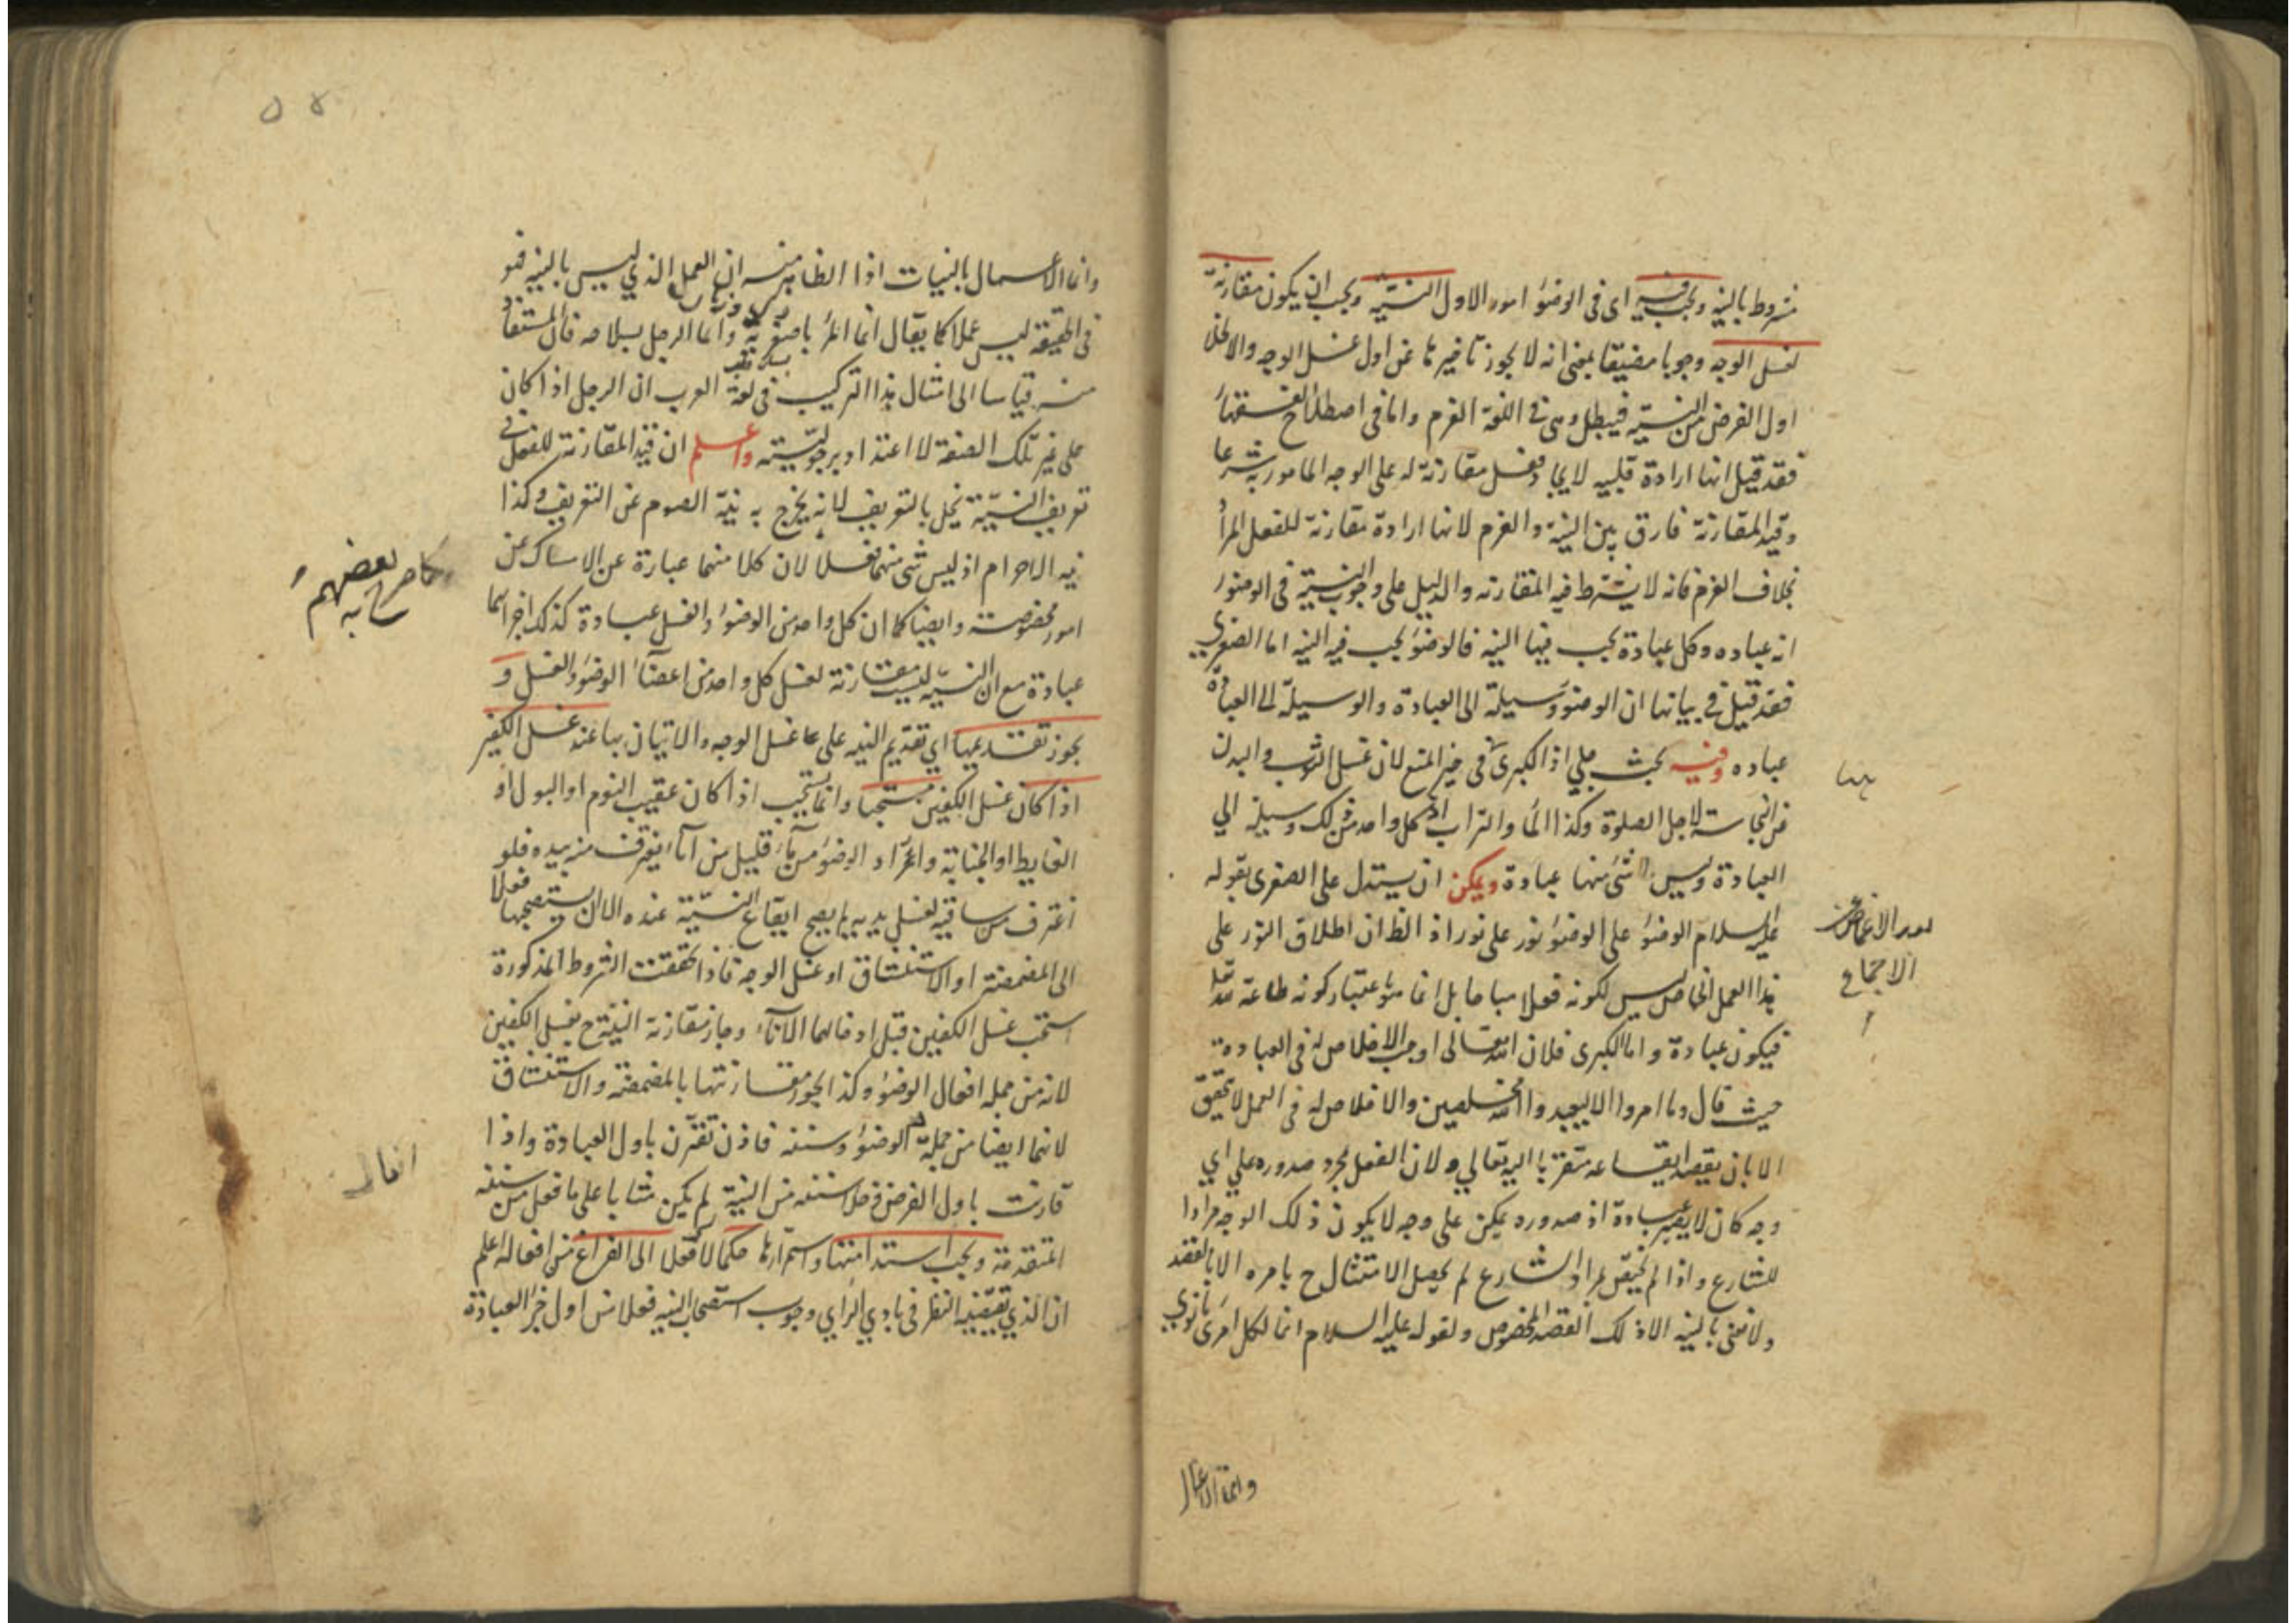 مشروط بالنية ويجب فيه اى فى الوضوء امور الاول النية ويجب ان يكون مقارنة
لغسل الوجه وجوبا مضيقا بمعنى انه لا يجوز تاخيرها عن اول غسل الوجه والا لخلا
اول الفرض من النية فيبطل وهى فى اللغة العزم واما فى اصطلاح الفقهاء
فقد قيل انها ارادة قلبيه لايجاد فعل مقارنة له على الوجه المامور به شرعا
وقيد المقارنة فارق بين النية والعزم لانها ارادة مقارنة للفعل المراد
بخلاف العزم فانه لا يشترط فيه المقارنه والدليل على وجوب النية فى الوضوء
انه عباده وكل عبادة يجب فيها النية فالوضوء يجب فيه النيه اما الصغرى
فقد قيل فى بيانها ان الوضوء وسيلة الى العبادة والوسيلة الى العبادة
عباده وفيه بحث جلي اذ الكبرى فى حيز المنع لان غسل الثوب والبدن
من النجاسة لاجل الصلوة وكذا الماء والتراب اذ كل واحد من ذلك وسيلة الي
العبادة وليس شئ منها عبادة ويمكن ان يستدل على الصغرى بقوله
عليه السلام الوضوء على الوضوء نور على نور اذ الظ ان اطلاق النور على
هذا العمل الخاص ليس لكونه فعلا مباحا بل انما هو باعتبار كونه طاعة لله
فيكون عبادة واما الكبرى فلان الله تعالى اوجب الاخلاص له فى العبادة
حيث قال وما امروا الا ليعبدوا الله مخلصين والاخلاص له فى العمل لا يتحقق
الا بان يقصد ايقاعه متقربا اليه تعالي ولان الفعل مجرد صدوره علي اي
وجه كان لا يصير عبادة اذ صدوره يمكن على وجه لا يكون ذلك الوجه مرادا
للشارع واذا لم يتحقق مراد الشارع لم يحصل الامتثال ح بامره الا بالقصد
ولا نعنى بالنية الا ذلك القصد المخصوص ولقوله عليه السلام انما لكل امرئ ما نوى
الاجماع
وانما الاعمال
وانما الاعمال بالنيات اذا الظاهر منه ان العمل الذي ليس بالنية فهو
فى الحقيقة ليس عملا كما يقال انما المرء باصغريه وانما الرجل بسلاحه فان المستفاد
منه قياسا الى امثال هذا التركيب فى لغة العرب ان الرجل اذا كان
على غير تلك الصفة لا اعتداد برجوليته واعلم ان قيد المقارنة للفعل فى
تعريف النية يخل بالتعريف لانه يخرج به نية الصوم عن التعريف وكذا
نيه الاحرام اذ ليس شئ منهما فعلا لان كلا منهما عبارة عن الامساك عن
امور مخصوصة وايضا كما ان كل واحد من الوضوء والغسل عبادة كذلك اجزائهما
عبادة مع ان النية ليست مقارنة لغسل كل واحد من اعضاء الوضوء والغسل و
يجوز تقديمها اي تقديم النيه على غسل الوجه والاتيان بها عند غسل الكفين
اذا كان غسل الكفين مستحبا وانما يستحب اذا كان عقيب النوم او البول او
الغايط او الجنابة واراد الوضوء من ماء قليل من اناء يغترف منه بيده فلو
اغترف من ساقية لغسل يديه لم يصح ايقاع النية عنده الا ان يستصحبها فعلا
الى المضمضة او الاستنشاق او غسل الوجه فاذا تحققت الشروط المذكورة
استحب غسل الكفين قبل ادخالهما الاناء وجاز مقارنة النية ح بغسل الكفين
لانه من جملة افعال الوضوء وكذا يجوز مقارنتها بالمضمضة والاستنشاق
لانهما ايضا من جملة الوضوء وسننه فاذن تقترن باول العبادة واذا
قارنت باول الفرض فخلا سننه من النية لم يكن مثابا على ما فعل من سننه
المتقدمة ويجب استدامتها واستمرارها حكما لا فعلا الى الفراغ من افعاله اعلم
ان الذي يقتضيه النظر فى بادي الراي وجوب استصحاب النيه فعلا من اول جزء العبادة
كما صرح بعضهم
به
افعال